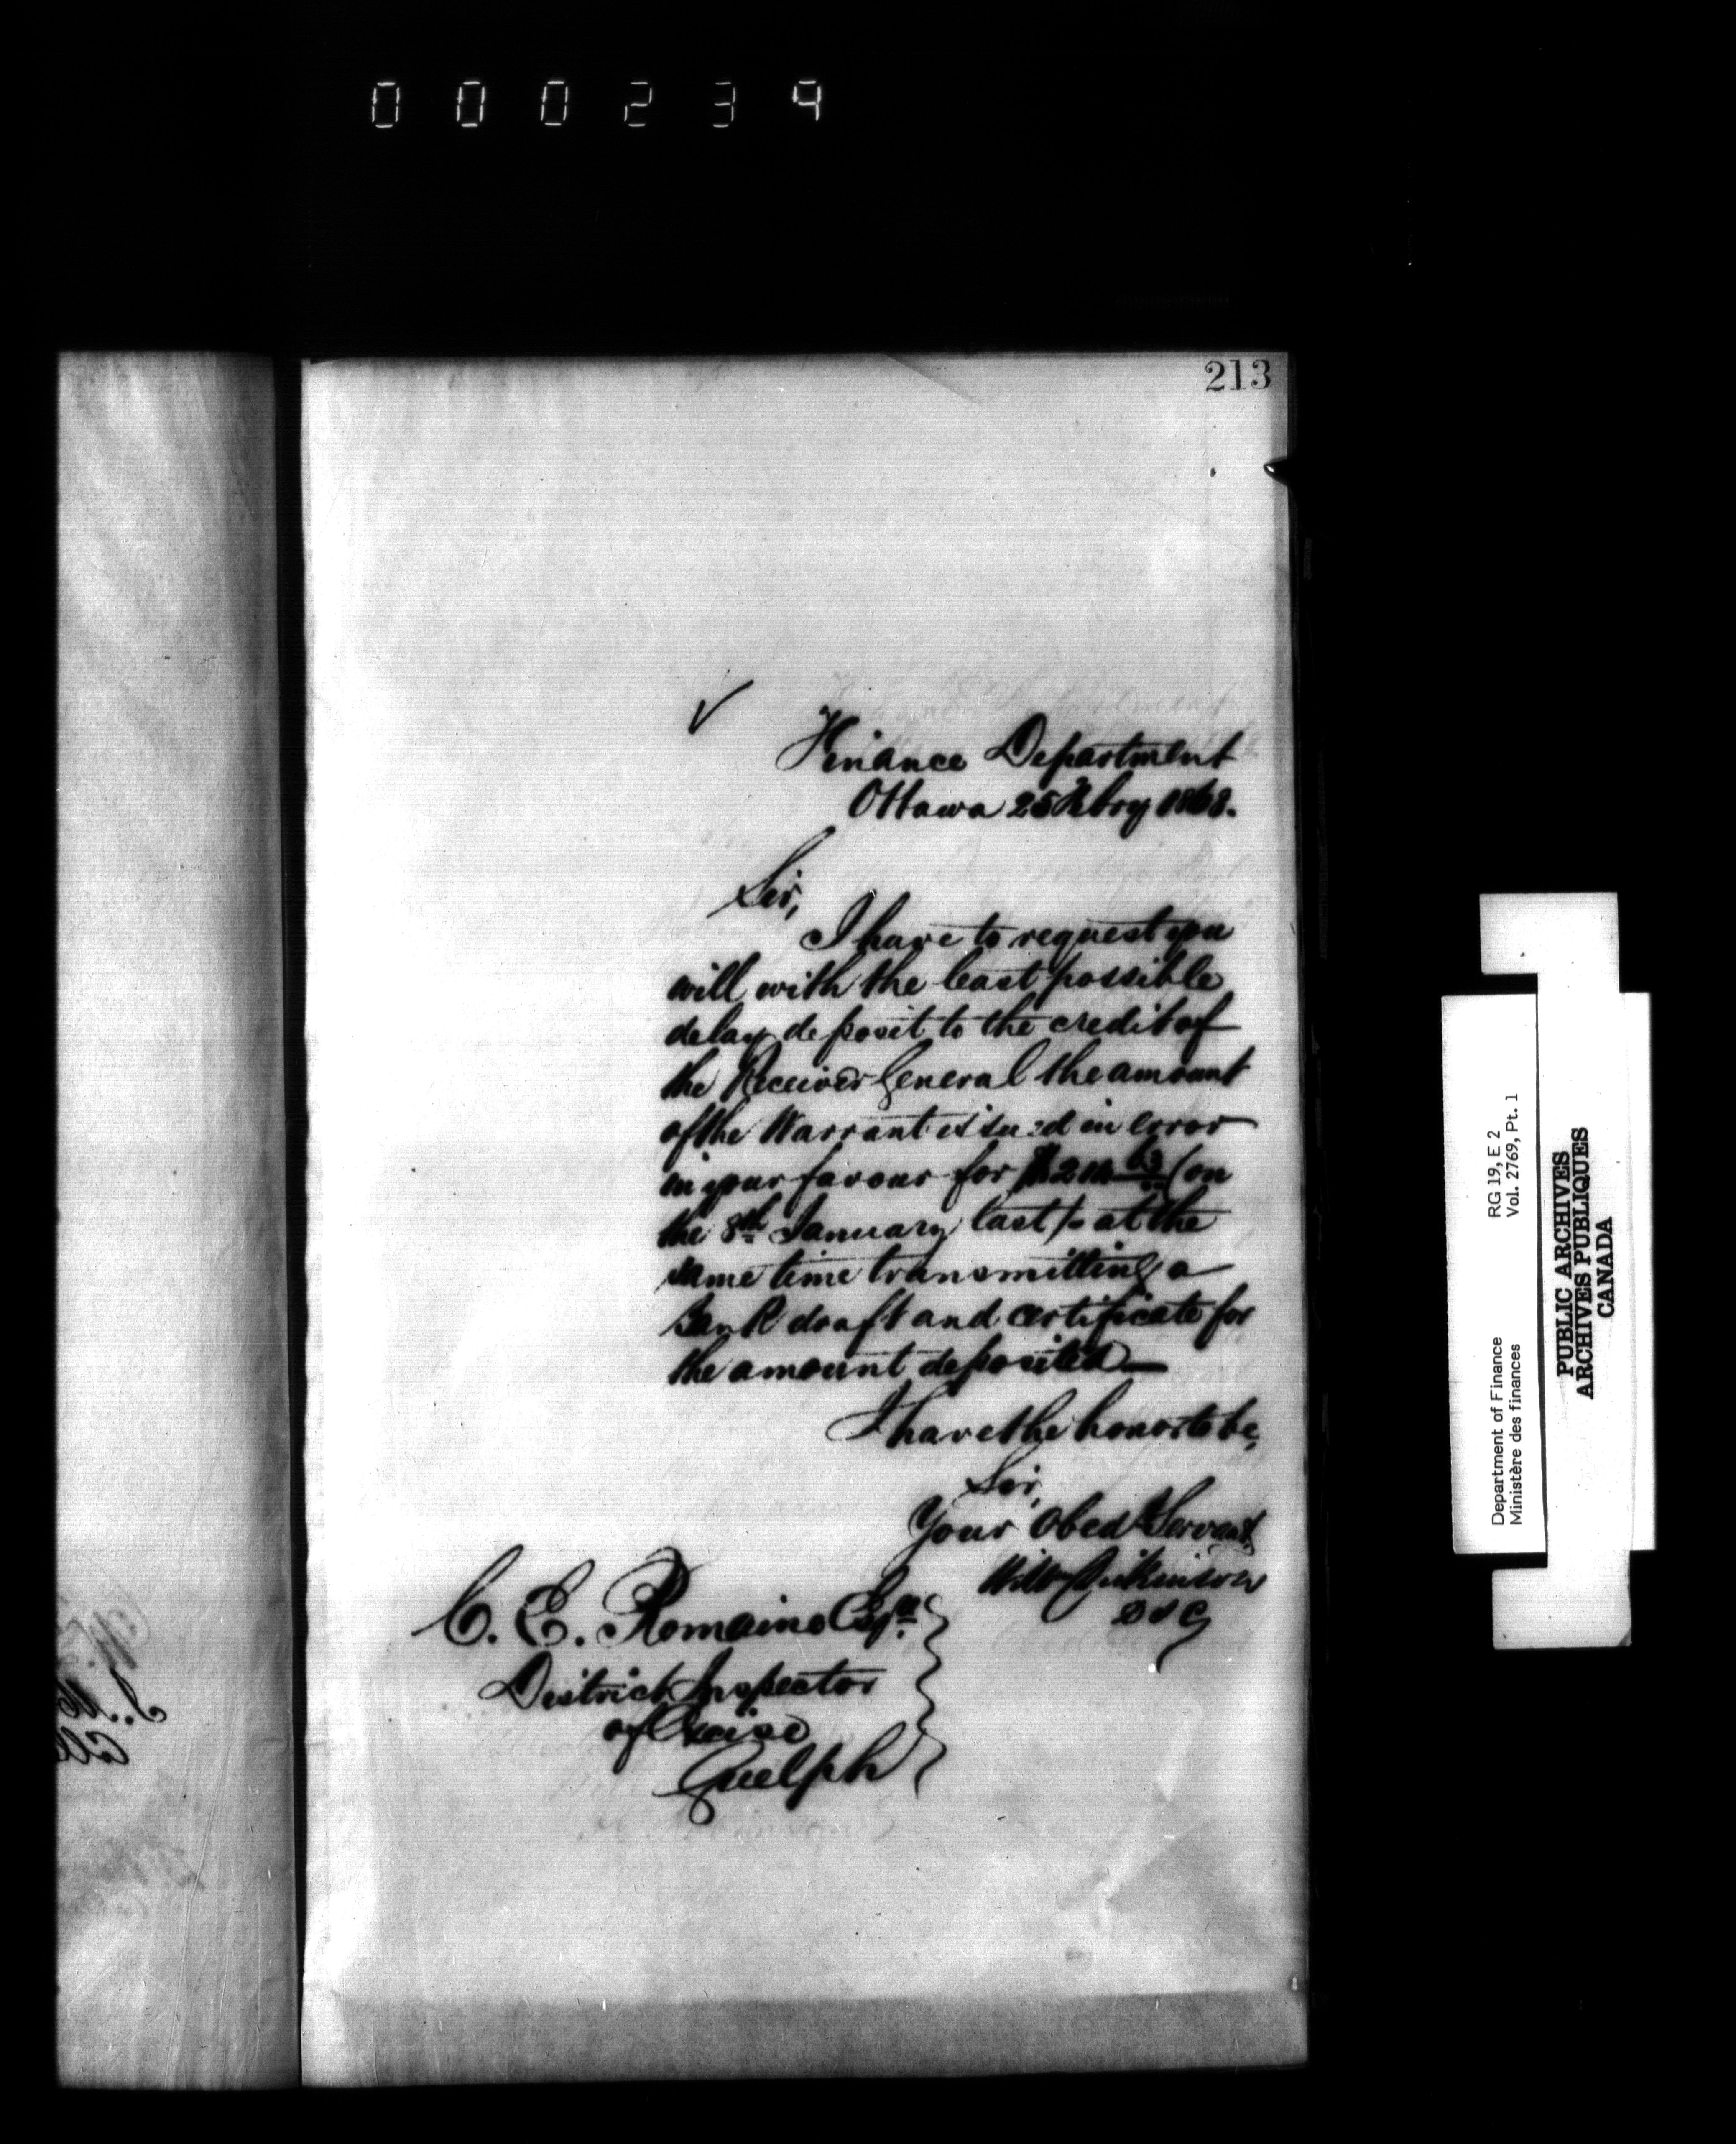 000239
213
✓
Finance Department
Ottawa 25 Febry 1868.
Sir,
I have to request you
will with the least possible
delay deposit to the credit of
the Receiver General the amount
of the Warrant issued in error
in your favour for (on
the 8th January last) at the
same time transmitting a
Bank draft and certificate for
the amount deposited
I have the honor to be,
Sir,
Your Obedt Servant
Wm Dickinson
D I G
C. E. Romaine Esqre
District Inspector
of Excise
Guelph
Department of Finance RG 19, E 2
Ministère des finances Vol. 2769, Pt. 1
PUBLIC ARCHIVES
ARCHIVES PUBLIQUES
CANADA